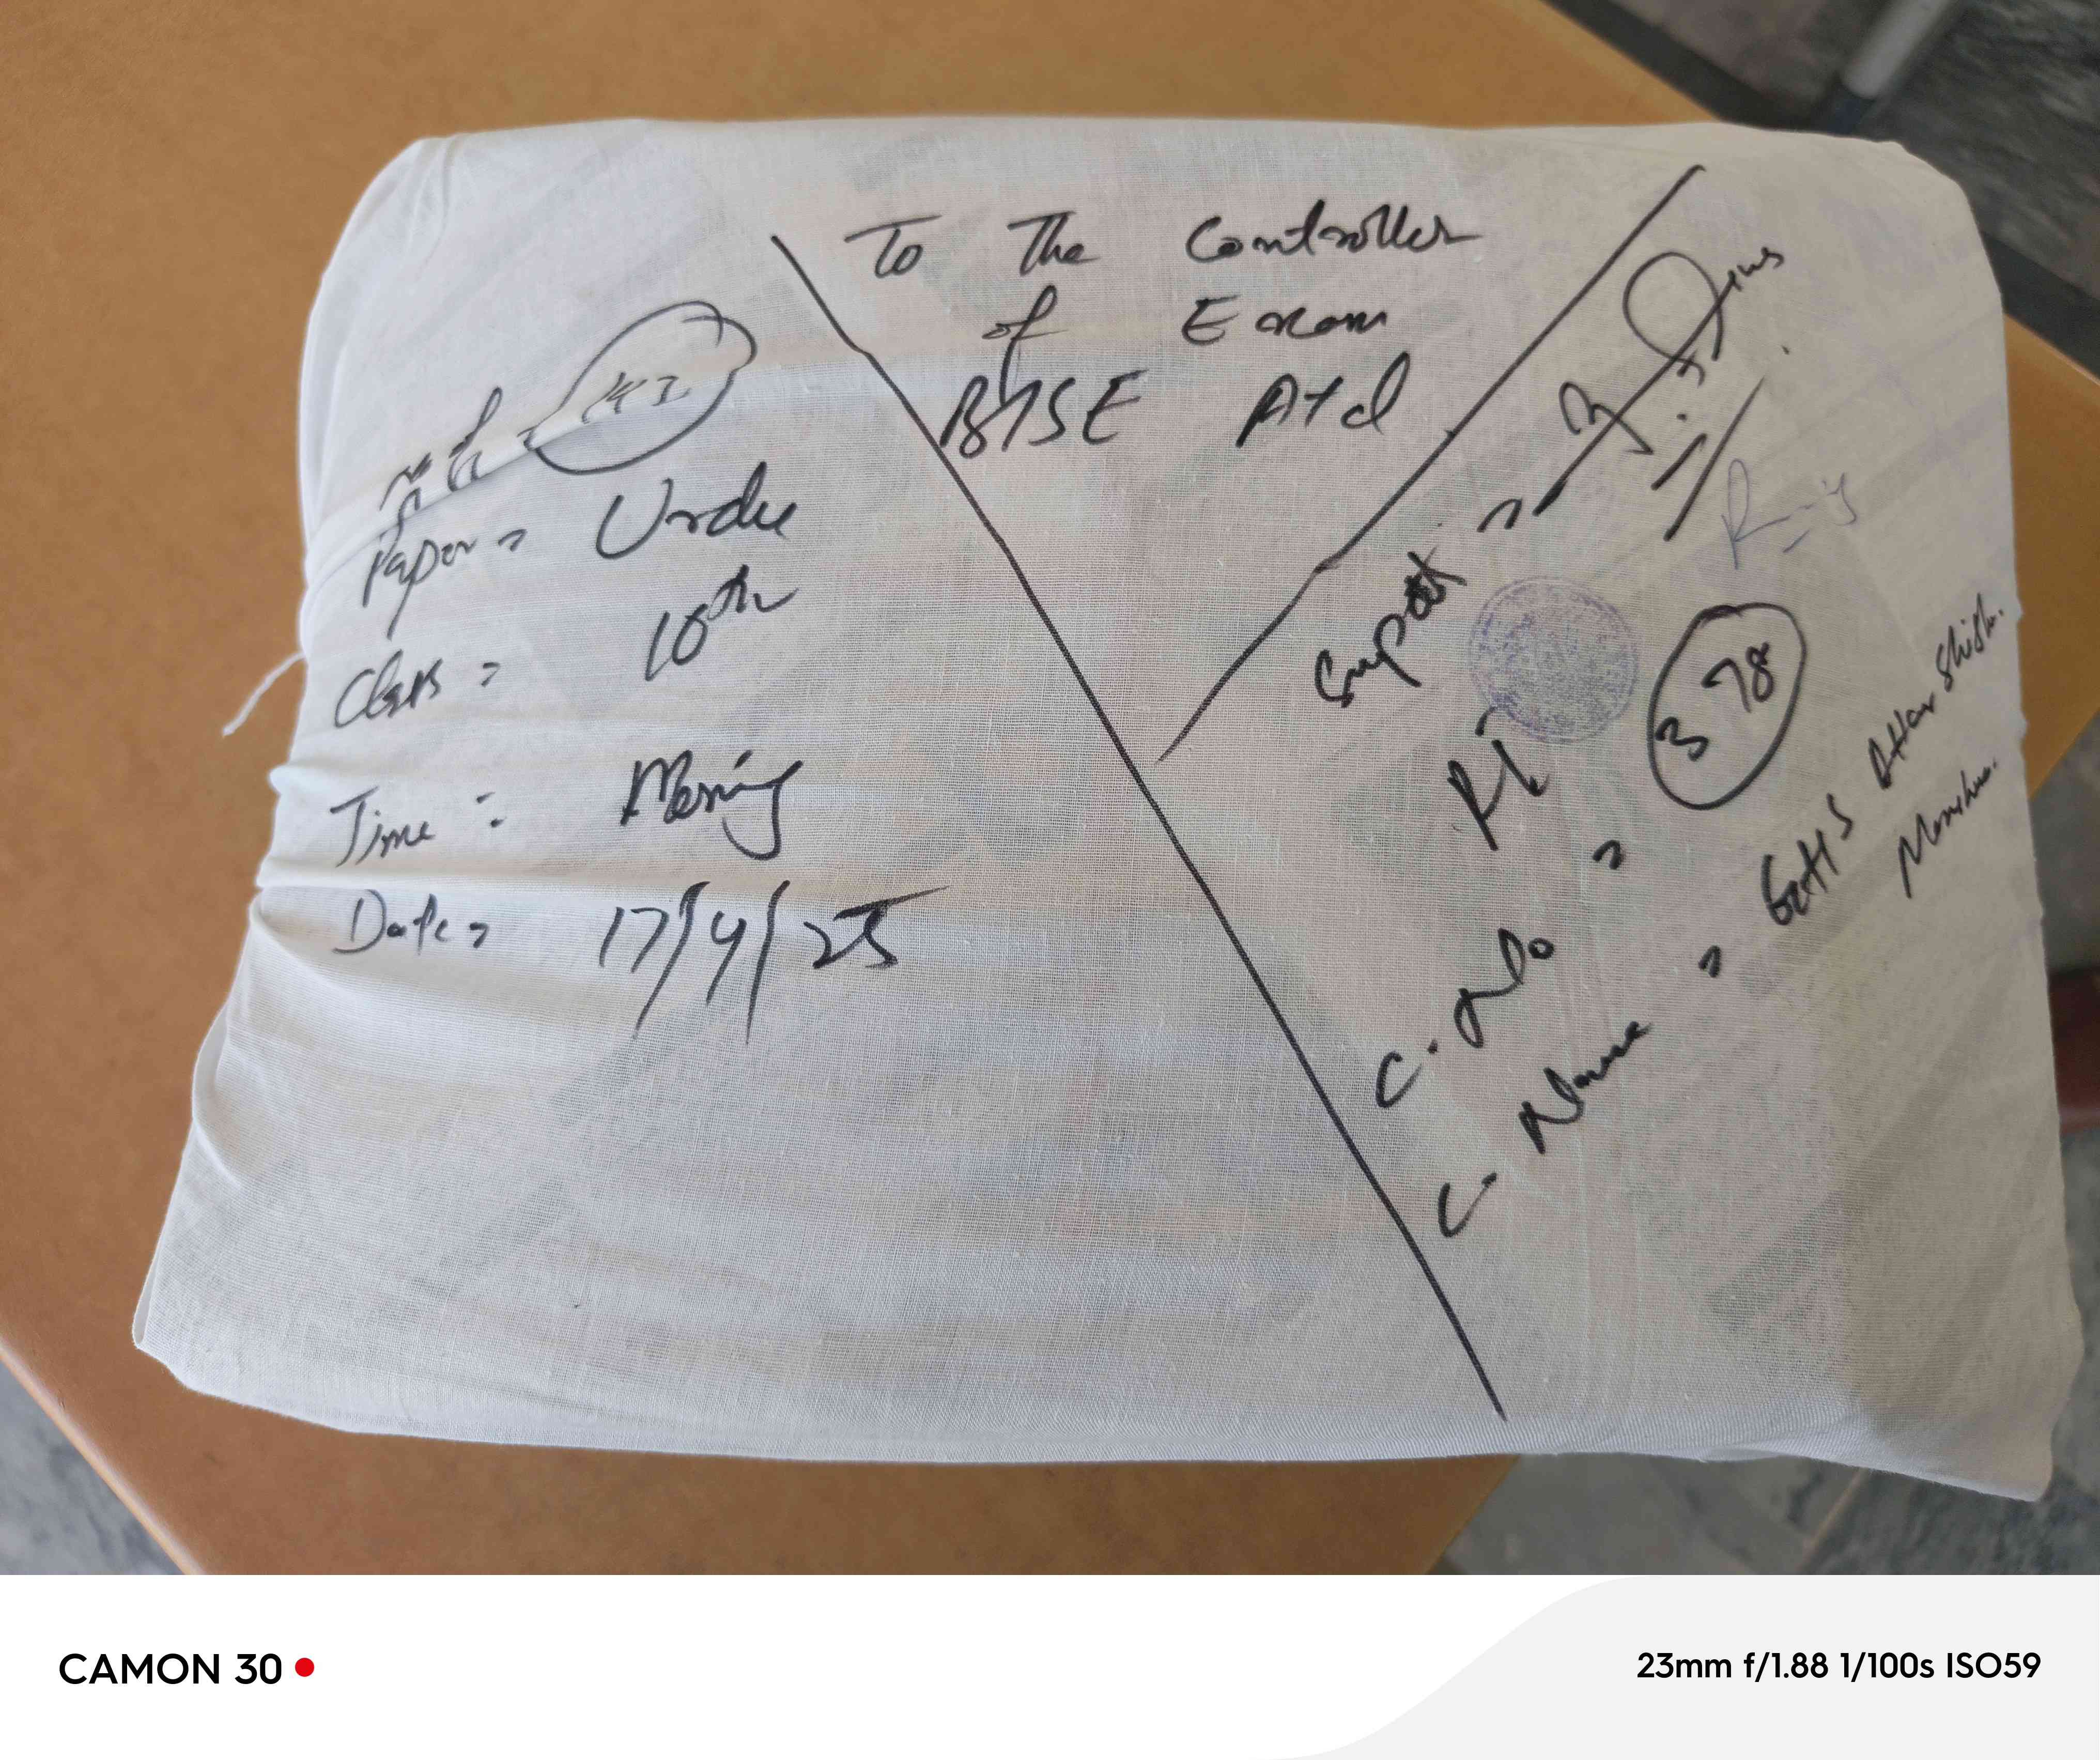 To The Controller
of Exam
BISE Atd
Paper = Urdu
Class = 10th
Time :- Morning
Date = 17/4/25
Supdt =
RI
C. No = 378
C. Name = GHS Attar Shish.
CAMON 30
23mm f/1.88 1/100s ISO59